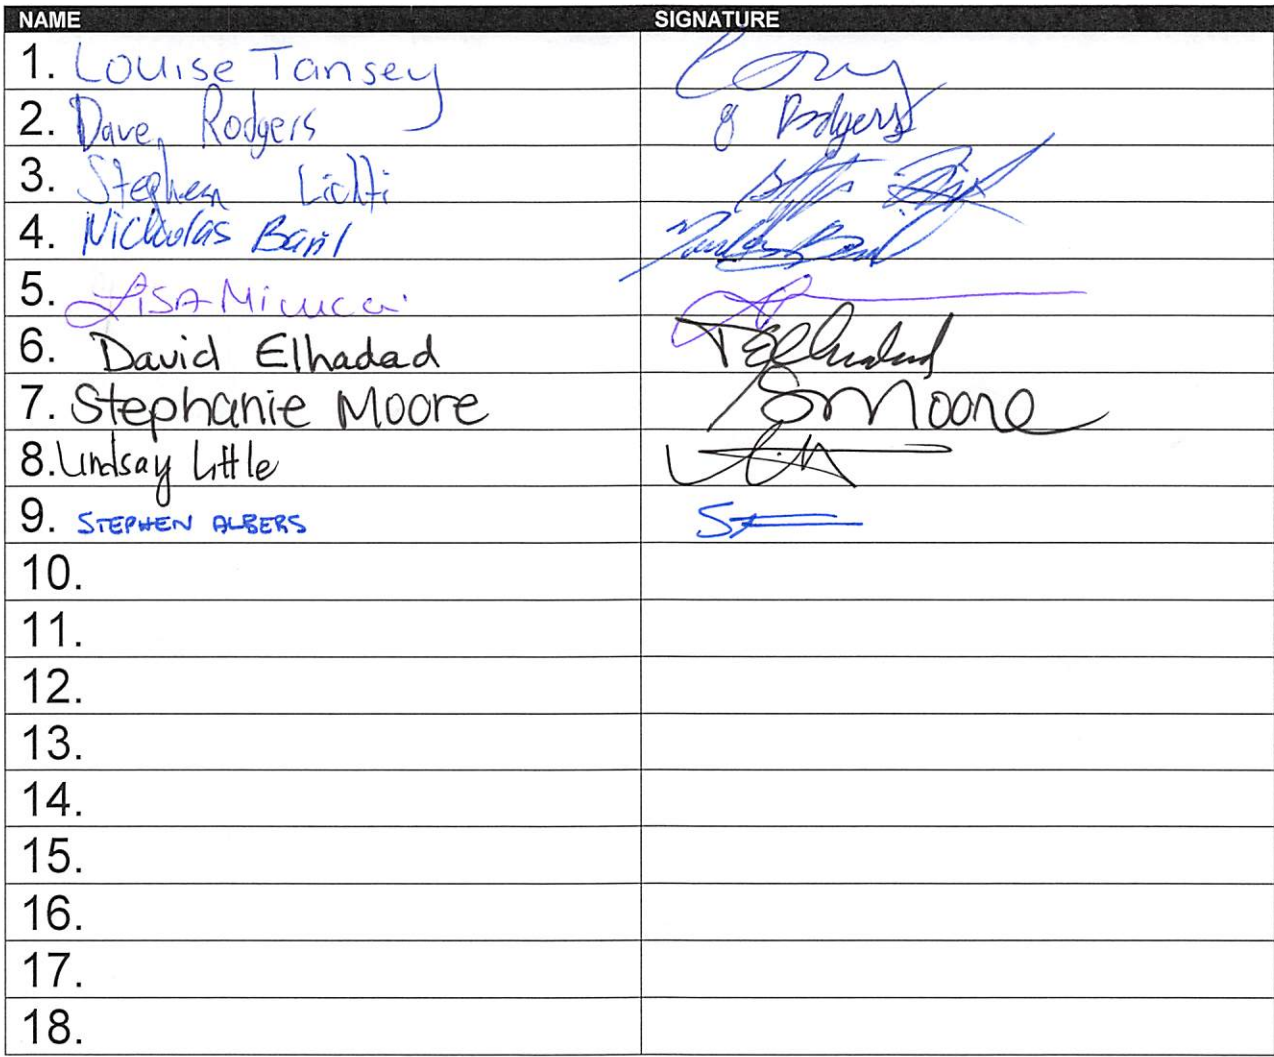 NAME SIGNATURE
1. Louise Tansey
2. Dave Rodgers Rodgers
3. Stephen Lichti
4. Nickolas Baril
5. Lisa
6. David Elhadad
7. Stephanie Moore S Moore
8. Lindsay Little
9. STEPHEN ALBERS
10.
11.
12.
13.
14.
15.
16.
17.
18.